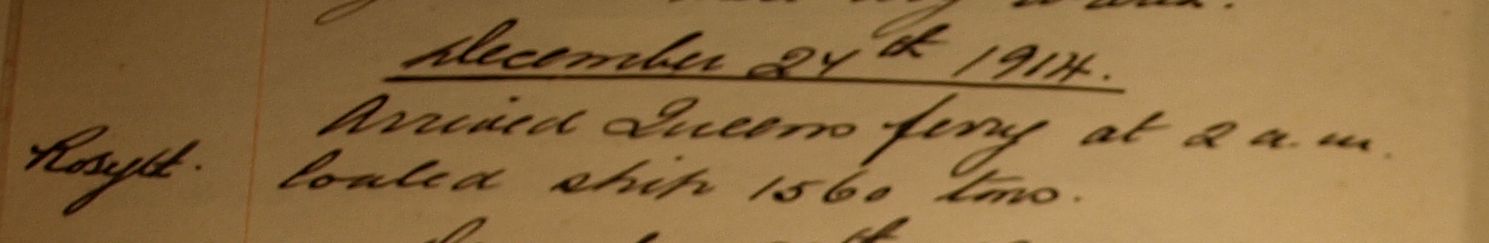 December 24th 1914.
Arrived Queens ferry at 2 a.m.
Rosyth.
Coaled ship 1560 tons.